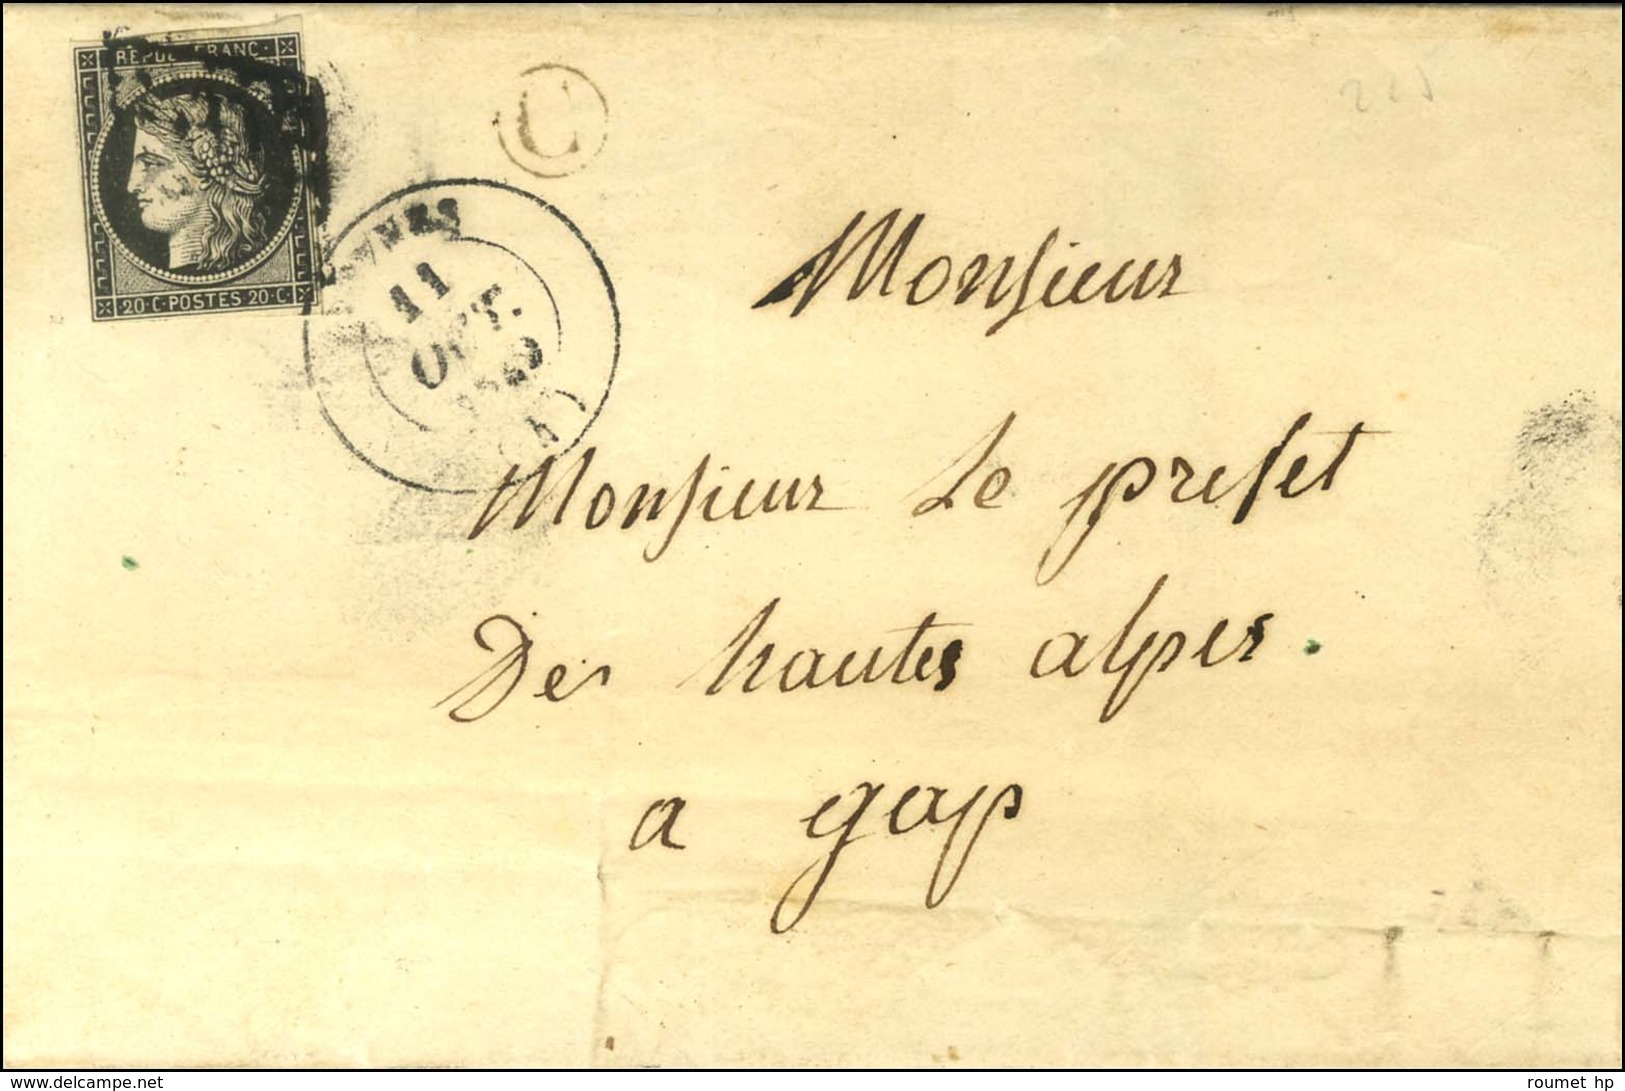 REPUB FRANC
20·C·POSTES 20·C·
C
11
OCT.
Monsieur
Monsieur Le prefet
Des hautes alpes.
a gap
www.delcampe.net
roumet hp